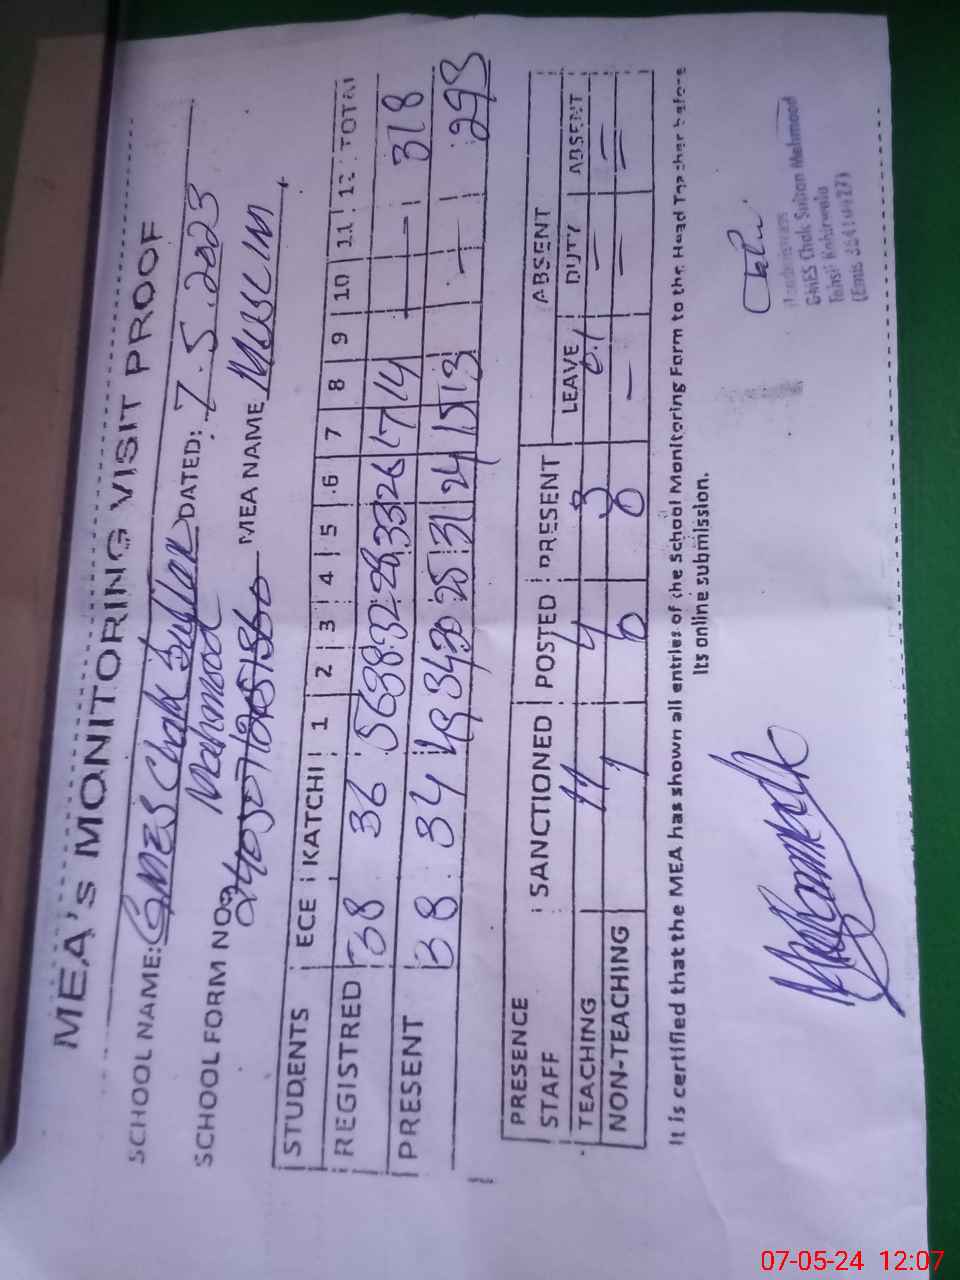 MEA's MONITORING VISIT PROOF
SCHOOL NAME: GMES Chak Sultan DATED: 7.5.2023
Mahmood
SCHOOL FORM NO. MEA NAME MUSLIM
STUDENTS ECE KATCHI 1 2 3 4 5 6 7 8 9 10 11 12 TOTAL
REGISTRED 38 36 56 38 32 28 33 26 17 14 — 318
PRESENT 38 34 49 34 30 25 31 24 15 13 — 293
PRESENCE ABSENT
STAFF SANCTIONED POSTED PRESENT LEAVE DUTY ABSENT
TEACHING 11 4 3 01 — —
NON-TEACHING 7 6 — — —
It is certified that the MEA has shown all entries of the School Monitoring Form to the Head Teacher before
Its online submission.
GMES Chak Sultan Mehmood
Tehsil Kabirwala
07-05-24 12:07